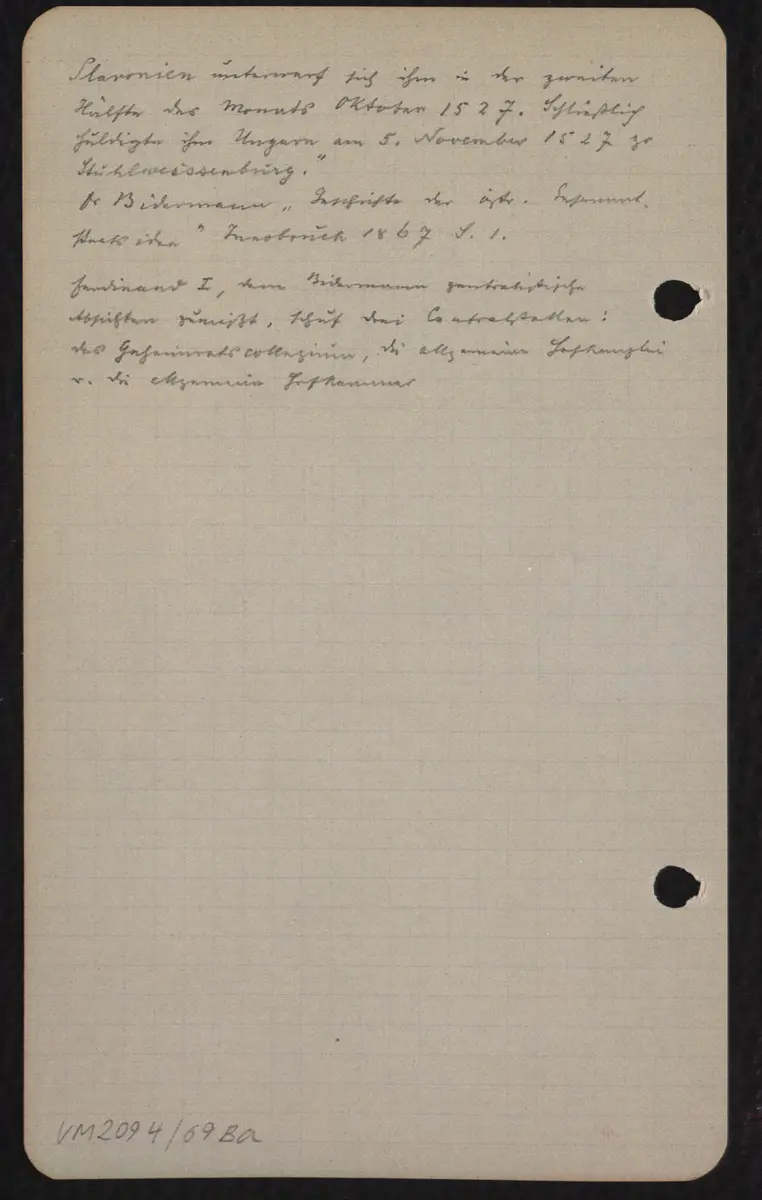 Slavonien unterwarf sich ihm in der zweiten
Hälfte des Monats Oktober 1527. Schließlich
huldigte ihm Ungarn am 5. November 1527 zu
Stuhlweissenburg."
Bidermann „Geschichte der östr. Gesammt-
staats idee" Innsbruck 1867 S. 1.
Ferdinand I, dem Bidermann zentralistische
Absichten zumißt, schuf drei Centralstellen:
das Geheimratscollegium, die allgemeine Hofkanzlei
u. die allgemeine Hofkammer
VM2094/69Ba